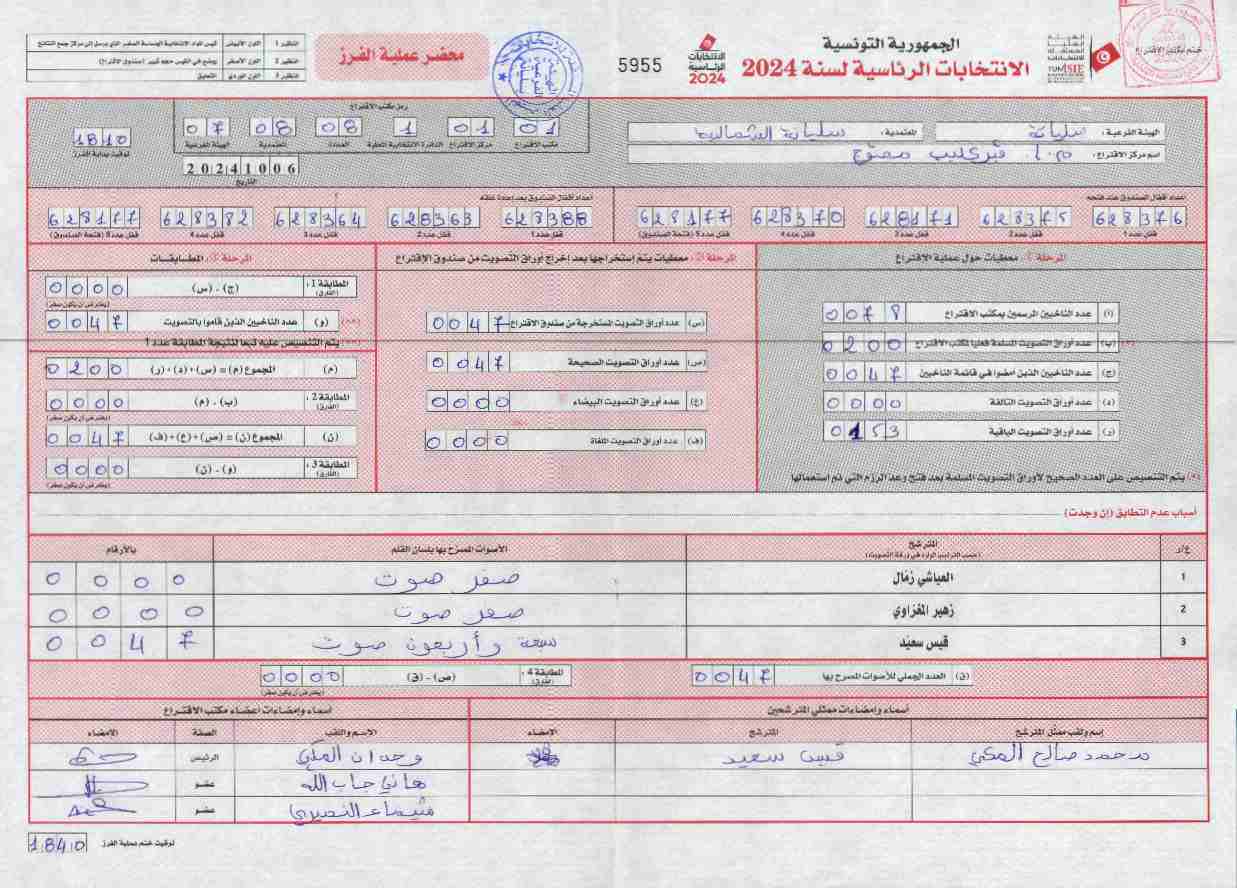 الجمهورية التونسية
الانتخابات الرئاسية لسنة 2024
الانتخابات الرئاسية 2024
5955
محضر عملية الفرز
ختم مكتب الاقتراع
النظير 1 اللون الأبيض
النظير 2 اللون الأصفر
النظير 3 اللون الوردي التعليق
الهيئة الفرعية : سليانة المعتمدية : سليانة الشمالية
اسم مركز الاقتراع :
رمز مكتب الاقتراع
01 01 1 08 08 07
مكتب الاقتراع مركز الاقتراع الدائرة الانتخابية المحلية العمادة المعتمدية الهيئة الفرعية
20241006
التاريخ
1810
توقيت بداية الفرز
أعداد أقفال الصندوق عند فتحه
628376 628375 628171 628370 628177
قفل عدد 1 قفل عدد 2 قفل عدد 3 قفل عدد 4 قفل عدد 5 (فتحة الصندوق)
أعداد أقفال الصندوق بعد إعادة غلقه
628388 628363 628364 628382 628177
قفل عدد 1 قفل عدد 2 قفل عدد 3 قفل عدد 4 قفل عدد 5 (فتحة الصندوق)
المرحلة ① : معطيات حول عملية الاقتراع
(أ) عدد الناخبين المرسمين بمكتب الاقتراع 0078
(*) (ب) عدد أوراق التصويت المسلمة فعليا لمكتب الاقتراع 0200
(ج) عدد الناخبين الذين أمضوا في قائمة الناخبين 0047
(د) عدد أوراق التصويت التالفة 0000
(ر) عدد أوراق التصويت الباقية 0153
(*) يتم التنصيص على العدد الصحيح لأوراق التصويت المسلمة بعد فتح وعد الرزم التي تم استعمالها
المرحلة ② : معطيات يتم إستخراجها بعد إخراج أوراق التصويت من صندوق الإقتراع
(س) عدد أوراق التصويت المستخرجة من صندوق الاقتراع 0047
(ص) عدد أوراق التصويت الصحيحة 0047
(ع) عدد أوراق التصويت البيضاء 0000
(ف) عدد أوراق التصويت الملغاة 0000
المرحلة ③ : المطابقات
المطابقة 1 : (الفارق) (ج) - (س) 0000
(يفترض أن يكون صفر)
(**) (و) عدد الناخبين الذين قاموا بالتصويت 0047
(**) يتم التنصيص عليه تبعا لنتيجة المطابقة عدد 1
(م) المجموع (م) = (س) + (د) + (ر) 0200
المطابقة 2 : (الفارق) (ب) - (م) 0000
(يفترض أن يكون صفر)
(ن) المجموع (ن) = (ص) + (ع) + (ف) 0047
المطابقة 3 : (الفارق) (و) - (ن) 0000
(يفترض أن يكون صفر)
أسباب عدم التطابق (إن وجدت)
ع/د المترشح (حسب الترتيب الوارد في ورقة التصويت) الأصوات المصرح بها بلسان القلم بالأرقام
1 العياشي زمال صفر صوت 0000
2 زهير المغزاوي صفر صوت 0000
3 قيس سعيد سبعة وأربعون صوت 0047
(ق) العدد الجملي للأصوات المصرح بها 0047
المطابقة 4 : (الفارق) (ص) - (ق) 0000
(يفترض أن يكون صفر)
أسماء وإمضاءات ممثلي المترشحين
إسم ولقب ممثل المترشح المترشح الامضاء
محمد صالح المكي قيس سعيد
أسماء وإمضاءات أعضاء مكتب الاقتراع
الاسم واللقب الصفة الامضاء
وجدان المكي الرئيس
هاني جاب الله عضو
شيماء النصيري عضو
توقيت ختم عملية الفرز 1840